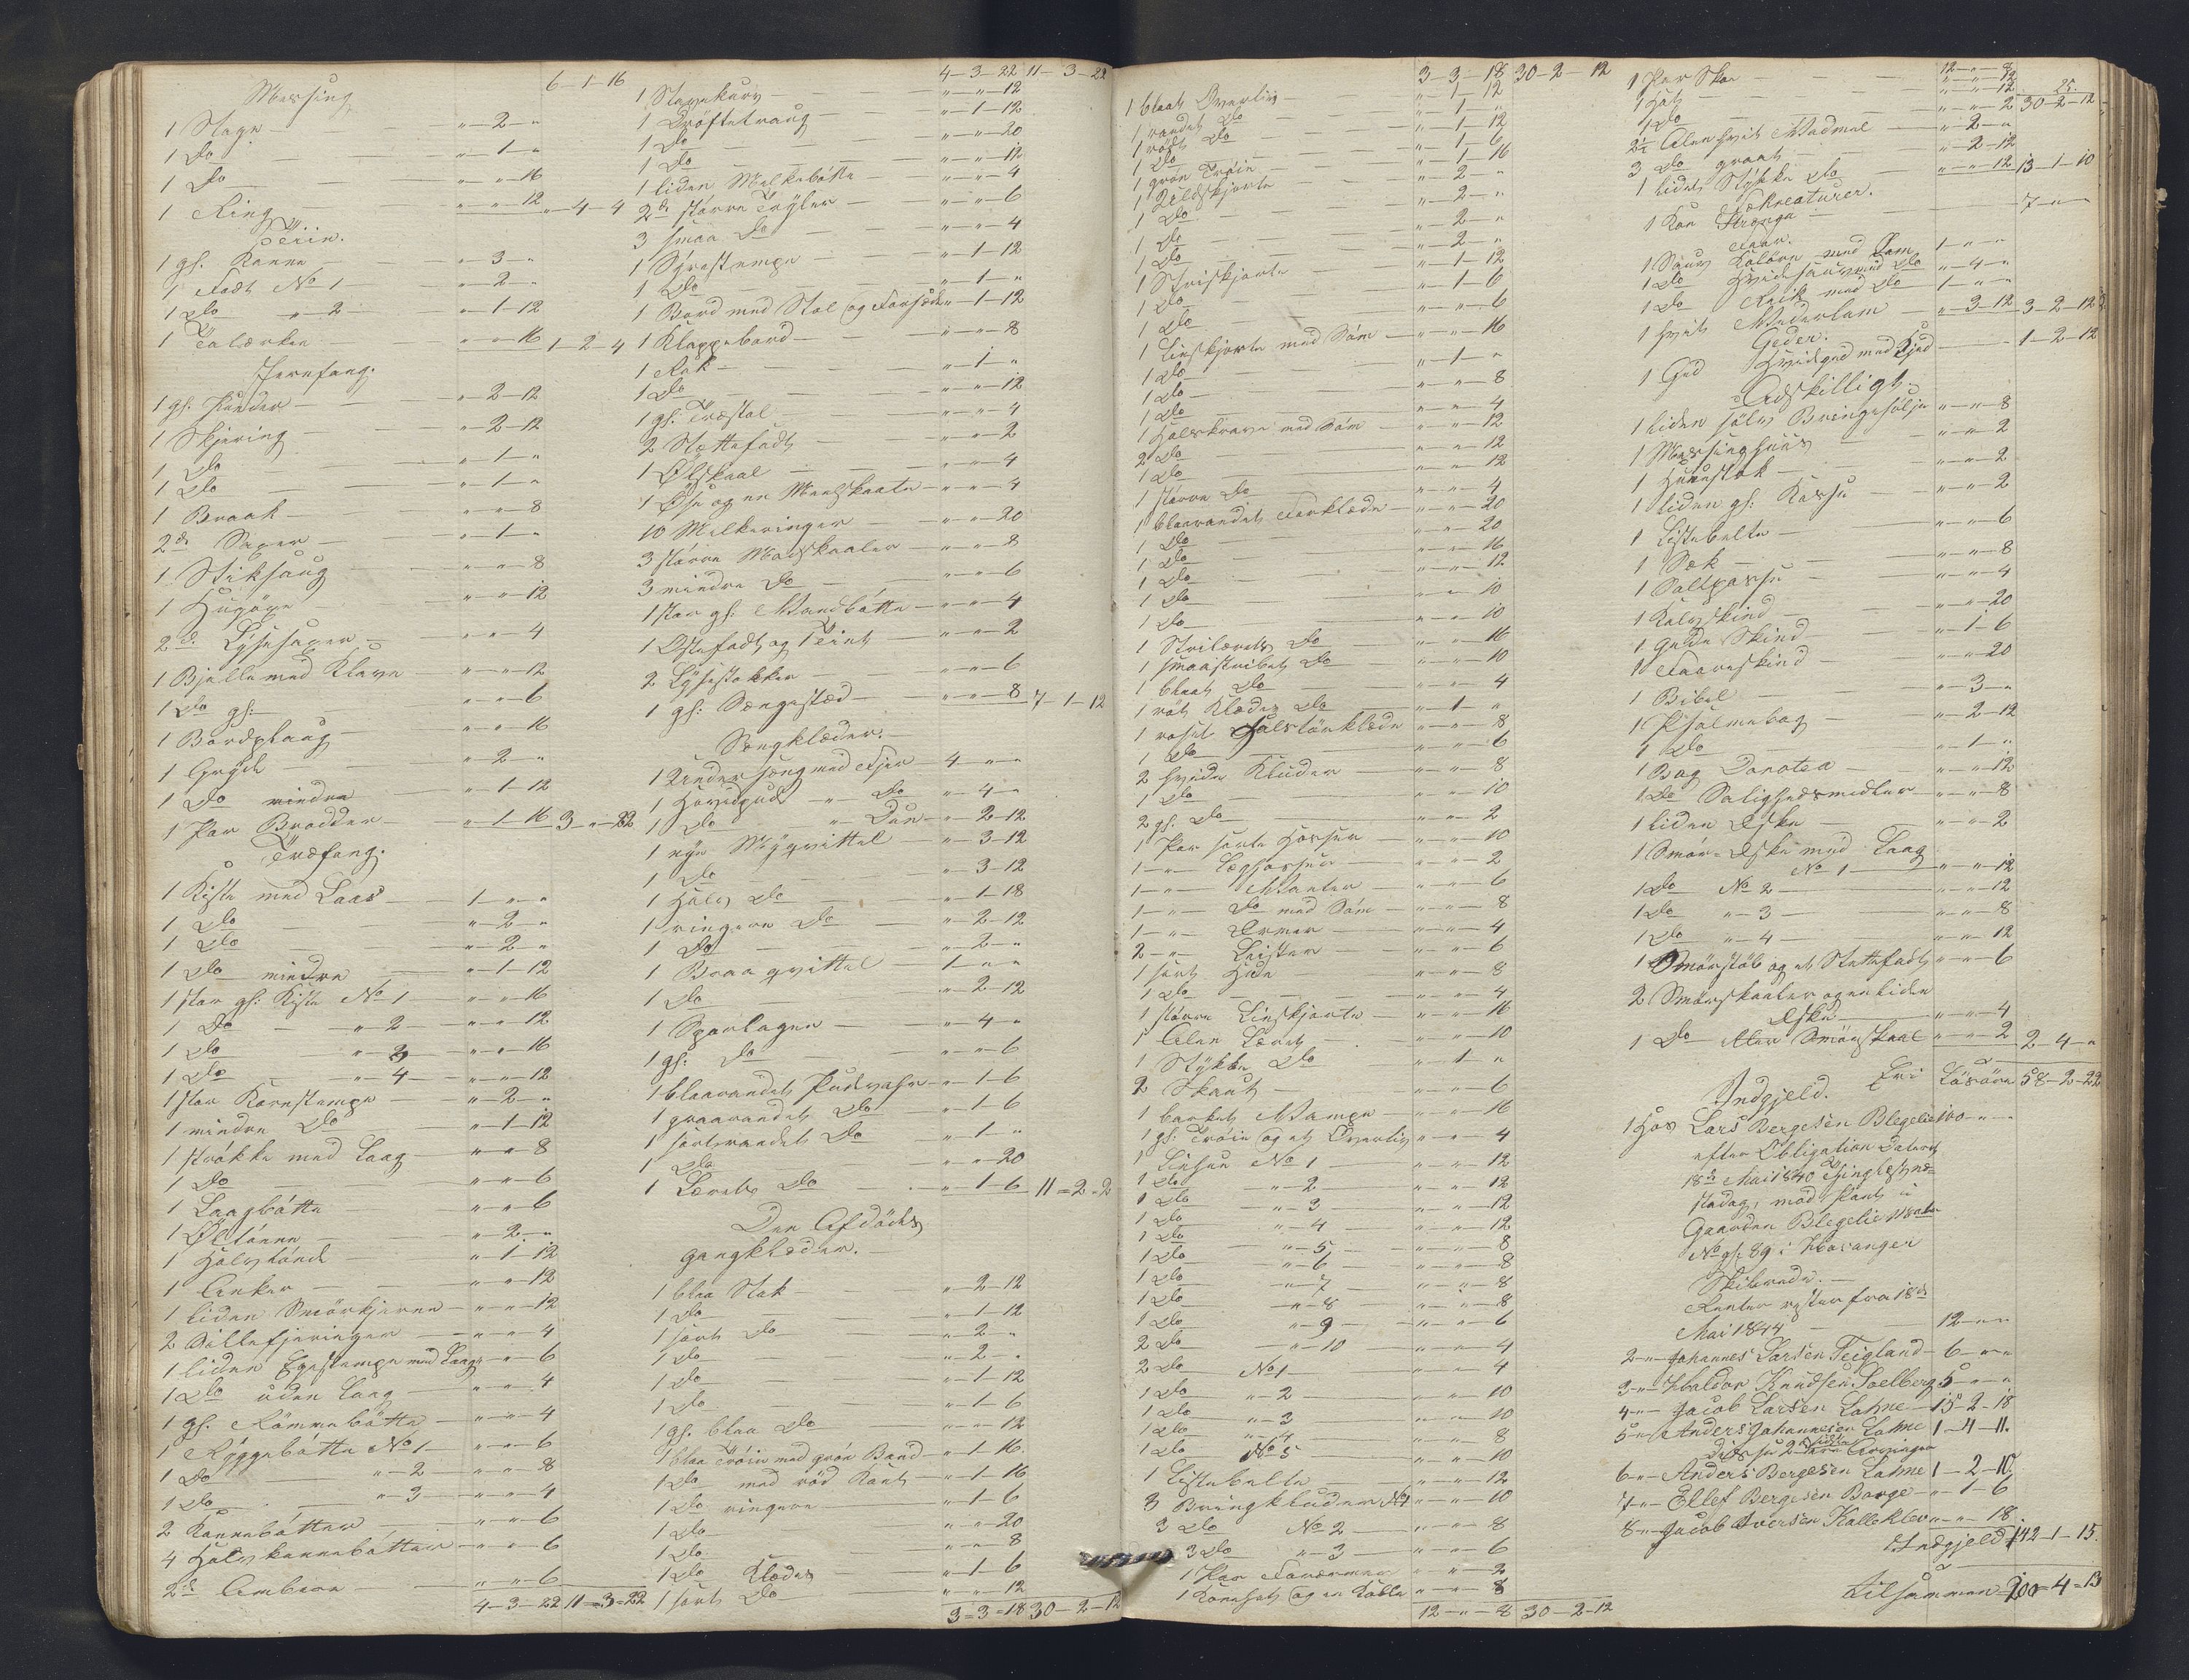 6-1-16
Messing
1 Stage - " - 2 - "
1 Do - " - 1 - "
1 Do - " - " - 16
1 Ring - " - " - 12 " - 4 - 4
Tiin.
1 gl. Kanne - " - 3 - "
1 Fadt No 1 - " - 2 - "
1 Do " - 2 - " - 1 - 12
1 Talærken - " - " - 16 1 - 2 - 4
Jernfang.
1 gl. - " - 2 - 12
1 Skjering - " - 2 - 12
1 Do - " - 1 - "
1 Do - " - 1 - "
1 Braak - " - " - 8
2de Saxer - " - 1 - "
1 Stiksaug - " - " - 8
1 Hugöxe - " - " - 12
2de Lysesaxer - " - " - 4
1 Bjelle med Klave - " - " - 12
1 Do gl: - " - " - 6
1 Bordplaug - " - " - 16
1 Gryde - " - 2 - "
1 Do mindre - " - 1 - 12
1 Par Brodder - " - 1 - 16 3 - " - 22
Træfang.
1 Kiste med Laas - 1 - " - "
1 Do - " - 2 - "
1 Do - " - 2 - "
1 Do mindre - " - 1 - 12
1 stor gl: Kiste No 1 - " - " - 16
1 Do " - 2 - " - " - 12
1 Do " - 3 - " - " - 16
1 Do " - 4 - " - " - 12
1 stor Kornstampe - " - 2 - "
1 mindre Do - " - 1 - 12
1 strökke med Laag - " - " - 8
1 Do - " - " - 6
1 Laagbötte - " - " - 6
1 Øltönne - " - 2 - "
1 Halvtönde - " - 1 - 12
1 Anker - " - " - 12
1 liden Smörkjerne - " - " - 12
2 Sillefjeringer - " - " - 4
1 liden Egestampe med Laag - " - " - 6
1 Do uden Laag - " - " - 4
1 gl. Römmebötte - " - " - 4
1 Ryggebötte No 1 - " - " - 6
1 Do " - 2 - " - " - 8
1 Do " - 3 - " - " - 4
2 Kannebötter - " - " - 6
4 Halvkannebötter - " - " - 6
2de Ambarer - " - " - 6
4 - 3 - 22 11 = 3 = 22
4 - 3 - 22 11 - 3 - 22
1 Stavekurv - " - " - 12
1 Dröftetraug - " - 1 - 12
1 Do - " - " - 20
1 Do - " - " - 12
1 liden Melkebötte - " - " - 4
2de större Tryler - " - " - 6
3 smaa Do - " - " - 4
1 Syrestampe - " - 1 - 12
1 Do - " - 1 - "
1 Bord med Stol og Forsæde " - 1 - 12
1 Klappebord - " - " - 8
1 Rok - " - 1 - "
1 Do - " - " - 12
1 gl: Træstol - " - " - 4
2 Stettefadt - " - " - 2
1 Ølskaal - " - " - 4
1 Øse og en Meelskaale - " - " - 4
10 Melkeringer - " - " - 20
3 större Madskaaler - " - " - 8
3 mindre Do - " - " - 6
1 stor gl: Vandbötte - " - " - 4
1 Ostefadt og 1 Teine - " - " - 2
2 Lysestokker - " - " - 6
1 gl: Sengested - " - " - 8 7 - 1 - 12
Sengklæder. -
1 Undersæng med Fjer - 4 - " - "
1 Hovedpude " - Do - " - 4 - "
1 Do " - Duun - " - 2 - 12
1 nye Myqvittel - " - 3 - 12
1 Do - " - 3 - 12
1 Halv Do - " - 1 - 18
1 ringere Do - " - 2 - 12
1 Do - " - 2 - "
1 Braaqvittel - 1 - " - "
1 Do - " - 2 - 12
1 Sparlagen - " - 4 - "
1 gl: Do - " - " - 6
1 blaarandet Pudevahr - " - 1 - 6
1 graarandet Do - " - 1 - 6
1 sortrandet Do - " - 1 - "
1 Do - " - " - 20
1 Lærets Do - " - 1 - 6 11 = 2 - 2
Den Afdödes
gangklæder. -
1 blaa Stak - " - 2 - 12
1 Do - " - 1 - 12
1 sort Do - " - 2 - "
1 Do - " - 2 - "
1 Do - " - 1 - 12
1 Do - " - 1 - 6
1 gl. blaa Do - " - " - 12
1 blaa Tröie med grön Band - " - 1 - 16.
1 Do med röd Kant - " - 1 - 16
1 Do ringere - " - 1 - 6
1 Do - " - " - 20
1 Do - " - " - 8
1 Do Klædes - " - 1 - 6
1 sort Do - " - " - 12
3 = 3 = 18 30 - 2 - 12
3 - 3 - 18 30 - 2 - 12
1 blaat Overliv - " - 1 - 12
1 randet Do - " - 1 - "
1 rödt Do - " - 1 - 12
1 Do - " - 1 - 6
1 grön Tröie - " - 1 - 16
1 Uldskjorte - " - 2 - "
1 Do - " - 2 - "
1 Do - " - 2 - "
1 Do - " - 2 - "
1 Striskjorte - " - 1 - 12
1 Do - " - 1 - 6
1 Do - " - " - 6
1 Linskjorte med Söm - " - " - 16
1 Do - " - 1 - "
1 Do - " - " - 8
1 Do - " - " - 4
1 Halskrave med Söm - " - " - 12
2 Do - " - " - 12
1 Do - " - " - 12
1 större Do - " - " - 4
1 blaarandet Forklæde - " - " - 20
1 Do - " - " - 20
1 Do - " - " - 16
1 Do - " - " - 12
1 Do - " - " - 10
1 Do - " - " - 10
1 Strilærets Do - " - " - 16
1 smaastribet Do - " - " - 10
1 blaat Do - " - " - 4
1 röt Klædes Do - " - 1 - "
1 roset Halstörklæde - " - " - 8
1 Do - " - " - 6
2 hvide Kluder - " - " - 8
1 Do - " - " - 10
2 gl. Do - " - " - 2
1 Par sorte Hosser - " - " - 10
1 - " - Læghosser - " - " - 2
1 - " - Vanter - " - " - 6
1 - " - Do med Söm - " - " - 8
1 - " - Ermer - " - " - 4
2 - " - Leister - " - " - 6
1 sort Hue - " - " - 8
1 Do - " - " - 4
1 större Linskjorte - " - " - 16
1 Alen Læret - " - " - 10
1 Stykke Do - " - 1 - "
2 Skaut - " - " - 6
1 barket Vampe - " - " - 16
1 gl: Tröie og et Overliv - " - " - 4
1 Linhue No 1 - " - " - 12
1 Do " - 2 - " - " - 12
1 Do " - 3 - " - " - 12
1 Do " - 4 - " - " - 12
1 Do " - 5 - " - " - 8
1 Do " - 6 - " - " - 8
1 Do " - 7 - " - " - 8
1 Do " - 8 - " - " - 8
1 Do " - 9 - " - " - 6
2 Do " - 10 - " - " - 4
2 Do No 1 - " - " - 4
1 Do " - 2 - " - " - 10
1 Do " - 3 - " - " - 10
1 Do " - 4 - " - " - 8
1 Do No 5 - " - " - 10
1 Listebelte - " - " - 12
3 Bringkluder No 1 - " - " - 10
3 Do No 2 - " - " - 8
3 Do " - 3 - " - " - 6
1 Par Forærmer - " - " - 2
1 Kornfat og en Kobbe - " - " - 8
12 - " - 8 30 - 2 - 12
25.
12 - " - 8 30 - 2 - 12
1 Par Skoe - " - " - 12
1 Hat - " - " - 12
1 Do - " - " - 2
2½ Alen hvit Vadmel - " - 2 - "
3 Do graat - " - 2 - 12
1 lidet Stykke Do - " - " - 12 13 - 1 - 10
Kreaturer.
1 Koe Stronga - 7 - " - "
Faar.
1 Sauv Kolore med Lam 1 - " - "
1 Do Hvidsauv med Do " - 4 - "
1 Do Krik med Do 1 - " - "
1 hvit Væderlam - " - 3 - 12 3 - 2 - 12
Geder.
1 Ged Hvidged med Kjed - 1 - 2 - 12
Adskilligt.
1 liden sölv Bringesölje " - " - 8
1 Messinghuus - " - " - 2
1 Huustak - " - " - 2
1 liden gl. Kasse - " - " - 2
1 Listebelte - " - " - 6
1 Sæk - " - " - 8
1 Saltpasse - " - " - 4
1 Kalvskind - " - " - 20
1 Gede Skind - " - 1 - 6
1 Faareskind - " - " - 20
1 Bibel - " - 3 - "
1 Psalmebog - " - 2 - 12
1 Do - " - 1 - "
1 Bog Dorotea - " - " - 12
1 Do Salighedsmidler - " - " - 8
1 liden Eske - " - " - 2
1 Smör-Eske med Laag
No 1 - " - " - 12
1 Do No 2 - " - " - 12
1 Do " - 3 - " - " - 8
1 Do " - 4 - " - " - 12
1 Smörstöb og et Stettefadt " - " - 6
2 Smörskaaler og en liden
Eske - " - " - 4
1 Do Smörskaal - " - " - 2 2 - 4 - "
Er i Lösöre 58 - 2 - 22
Indgjeld.
1 Hos Lars Bergesen Blegelie 100 - " - "
efter Obligation dateret
18de Mai 1840 Thinglæst næ-
stedag, mod Pant i
Gaarden Blegelie Matr.
No gl. 89 i Kvaranger
Skibrede. -
Renter rester fra 18de
Mai 1844 - 12 - " - "
2 - " - Johannes Larsen Teigland - 6 - " - "
3 - " - Haldor Knudsen Soelberg 5 - " - "
4 - " - Jacob Larsen Lahne - 15 - 2 - 18
5 - " - Anders Johannesen Lahne 1 - 4 - 11.
6 - " - Anders Bergesen Lahne 1 - 2 - 10
7 - " - Ellef Bergesen Borge - " - 1 - 6
8 - " - Jacob Iversen Kalleklev " - " - 18
Indgjeld 142 - 1 - 15.
tilsammen 200 = 4 = 13